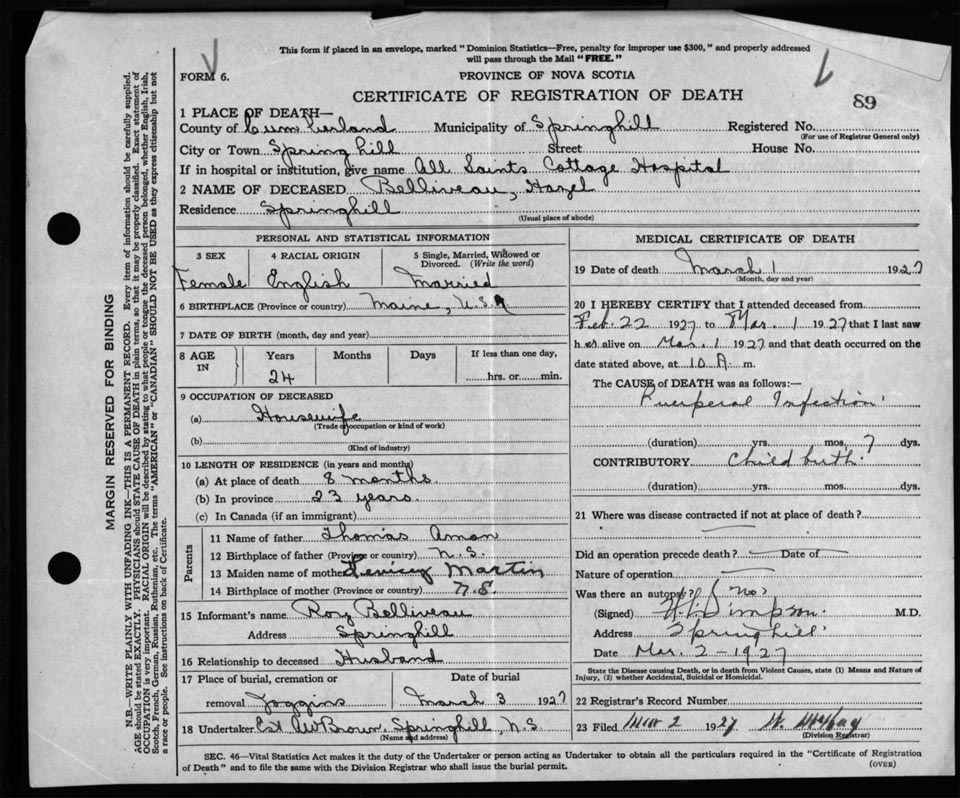 This form if placed in an envelope, marked "Dominion Statistics—Free, penalty for improper use $300," and properly addressed
will pass through the Mail "FREE."
FORM 6.
PROVINCE OF NOVA SCOTIA
CERTIFICATE OF REGISTRATION OF DEATH
89
1 PLACE OF DEATH—
County of Cumberland Municipality of Springhill Registered No.
(For use of Registrar General only)
City or Town Spring hill Street House No.
If in hospital or institution, give name All Saints Cottage Hospital
2 NAME OF DECEASED Belliveau, Hazel
Residence Springhill
(Usual place of abode)
PERSONAL AND STATISTICAL INFORMATION
3 SEX 4 RACIAL ORIGIN 5 Single, Married, Widowed or Divorced. (Write the word)
Female English Married
6 BIRTHPLACE (Province or country) Maine, U.S.A
7 DATE OF BIRTH (month, day and year)
8 AGE IN Years Months Days If less than one day,
24 hrs. or min.
9 OCCUPATION OF DECEASED
(a) Housewife
(Trade occupation or kind of work)
(b)
(Kind of industry)
10 LENGTH OF RESIDENCE (in years and months)
(a) At place of death 8 months.
(b) In province 23 years.
(c) In Canada (if an immigrant)
Parents
11 Name of father Thomas Amon
12 Birthplace of father (Province or country) N.S.
13 Maiden name of mother Martin
14 Birthplace of mother (Province or country) N.S.
15 Informant's name Roy Belliveau
Address Springhill
16 Relationship to deceased Husband
17 Place of burial, cremation or removal Date of burial
Joggins March 3 1927
18 Undertaker Est AW Brown, Springhill, N.S
(Name and address)
MEDICAL CERTIFICATE OF DEATH
19 Date of death March 1 1927
(Month, day and year)
20 I HEREBY CERTIFY that I attended deceased from
Feb. 22 1927 to Mar. 1 1927 that I last saw
h er alive on Mar. 1 1927 and that death occurred on the
date stated above, at 10 A. m.
The CAUSE of DEATH was as follows:—
Puerperal Infection
(duration) yrs. mos. 7 dys.
CONTRIBUTORY Child birth
(duration) yrs. mos. dys.
21 Where was disease contracted if not at place of death?
Did an operation precede death? — Date of —
Nature of operation —
Was there an autopsy? (No)
(Signed) Simpson. M.D.
Address Springhill
Date Mar. 2 - 1927
State the Disease causing Death, or in death from Violent Causes, state (1) Means and Nature of
Injury, (2) whether Accidental, Suicidal or Homicidal.
22 Registrar's Record Number
23 Filed Mar 2 1927
(Division Registrar)
SEC. 46—Vital Statistics Act makes it the duty of the Undertaker or person acting as Undertaker to obtain all the particulars required in the "Certificate of Registration
of Death" and to file the same with the Division Registrar who shall issue the burial permit.
(OVER)
MARGIN RESERVED FOR BINDING
N.B.—WRITE PLAINLY WITH UNFADING INK—THIS IS A PERMANENT RECORD. Every item of information should be carefully supplied.
AGE should be stated EXACTLY. PHYSICIANS should STATE CAUSE OF DEATH in plain terms, so that it may be properly classified. Exact statement of
OCCUPATION is very important. RACIAL ORIGIN will be described by stating to what people or tongue the deceased person belonged, whether English, Irish,
Scotch, French, German, Russian, Ruthenian, etc. The terms "AMERICAN" or "CANADIAN" SHOULD NOT BE USED as they express citizenship but not
a race or people. See instructions on back of Certificate.